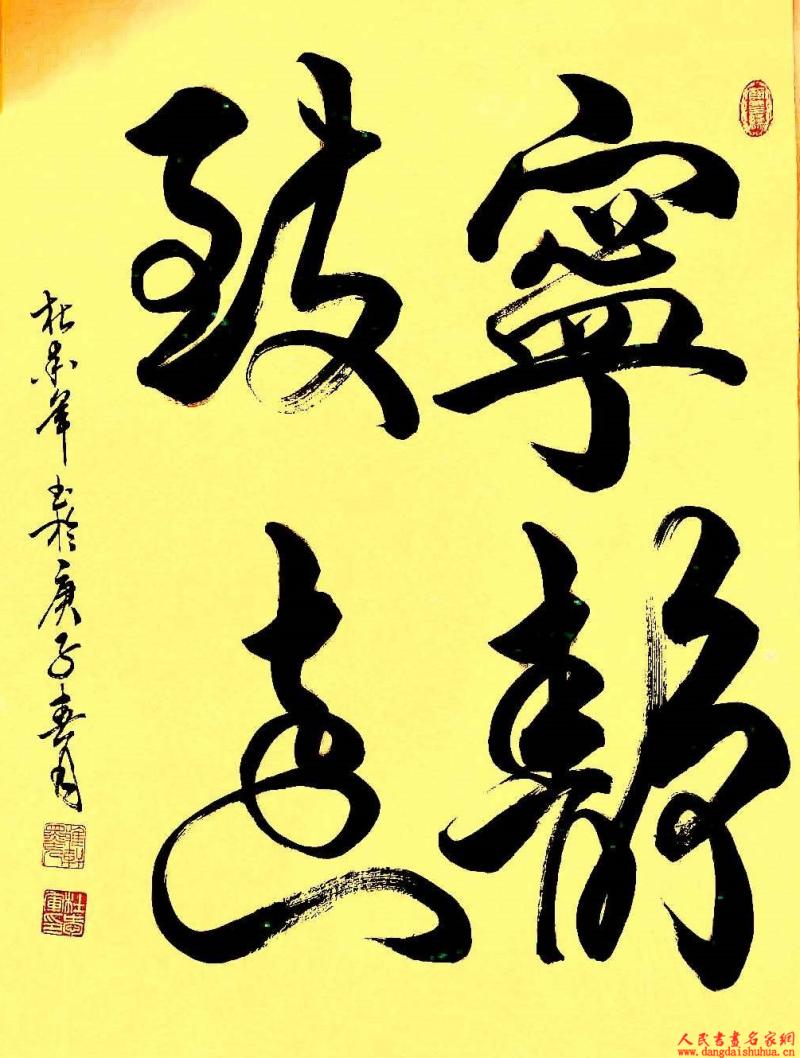 寧靜
致遠
杜忠軍书於庚子春月
人民書畫名家網
www.dangdaishuhua.cn